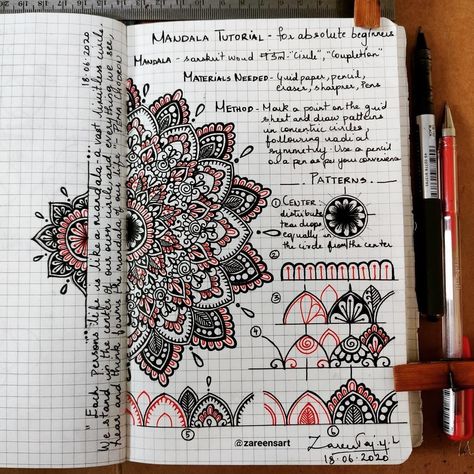 18.06.2020
"Each person's life is like a mandala - a vast, limitless circle.
We stand in the center of our own circle, and everything we see,
hear and think forms the mandala of our life" - Pema Chodron
MANDALA TUTORIAL - for absolute beginners
MANDALA - sanskrit word "Circle", "Completion"
MATERIALS NEEDED - grid paper, pencil,
eraser, sharpner, Pens
METHOD - Mark a point on the grid
sheet and draw patterns
in concentric circles
following radial
symmetry. Use a pencil
or a pen as per your convenience
PATTERNS
① CENTER :
distribute
tear drops
equally in
the circle from the center
2
3
4
5
6
@zareensart
18.06.2020